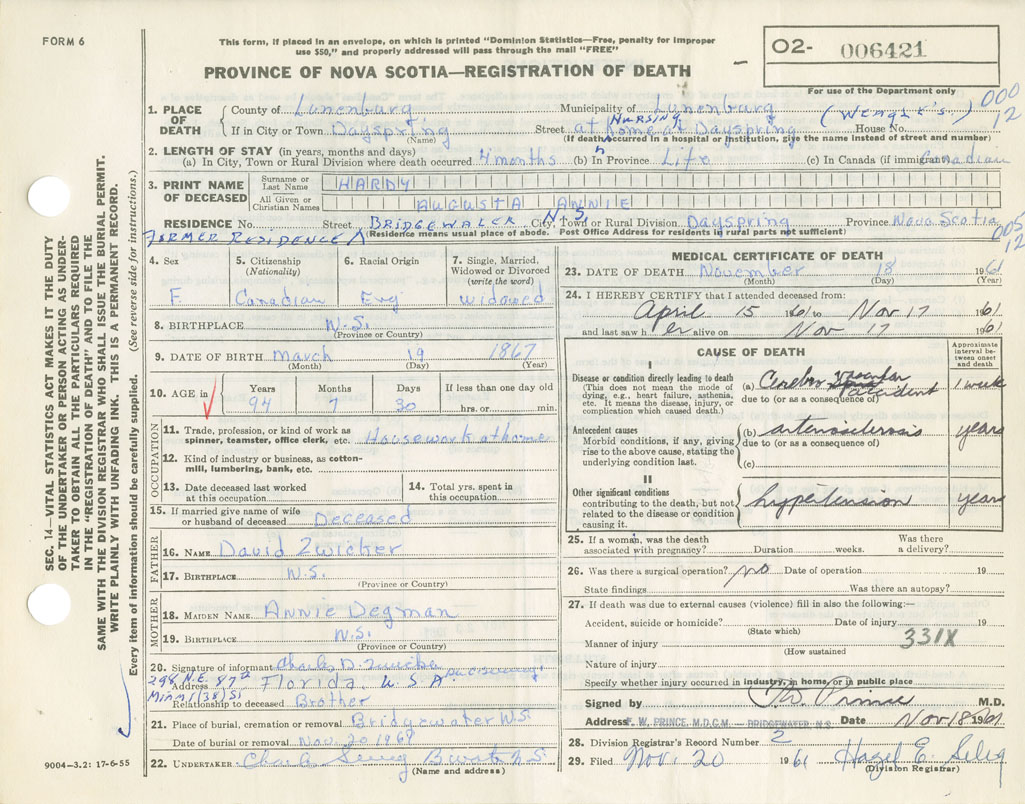 FORM 6
This form, if placed in an envelope, on which is printed "Dominion Statistics—Free, penalty for improper
use $50," and properly addressed will pass through the mail "FREE"
PROVINCE OF NOVA SCOTIA—REGISTRATION OF DEATH
O2- 006421
For use of the Department only
000
12
1. PLACE OF DEATH
County of Lunenburg Municipality of Lunenburg (WENGLE'S)
If in City or Town Dayspring Street at NURSING home at Dayspring House No.
(Name) (If death occurred in a hospital or institution, give the name instead of street and number)
2. LENGTH OF STAY (in years, months and days)
(a) In City, Town or Rural Division where death occurred 4 months (b) In Province Life (c) In Canada (if immigrant) Canadian
3. PRINT NAME OF DECEASED
Surname or Last Name HARDY
All Given or Christian Names AUGUSTA ANNIE
RESIDENCE No. Street BRIDGEWATER N.S. City, Town or Rural Division Dayspring Province Nova Scotia
FORMER RESIDENCE (Residence means usual place of abode. Post Office Address for residents in rural parts not sufficient)
005
12
4. Sex F
5. Citizenship (Nationality) Canadian
6. Racial Origin Eng
7. Single, Married, Widowed or Divorced (write the word) Widowed
8. BIRTHPLACE N.S.
(Province or Country)
9. DATE OF BIRTH March 19 1867
(Month) (Day) (Year)
10. AGE in Years 94 Months 7 Days 30 If less than one day old hrs. or min.
OCCUPATION
11. Trade, profession, or kind of work as spinner, teamster, office clerk, etc. Housework at home
12. Kind of industry or business, as cotton-mill, lumbering, bank, etc.
13. Date deceased last worked at this occupation
14. Total yrs. spent in this occupation
15. If married give name of wife or husband of deceased Deceased
FATHER
16. NAME David Zwicker
17. BIRTHPLACE N.S.
(Province or Country)
MOTHER
18. MAIDEN NAME Annie Degman
19. BIRTHPLACE N.S.
(Province or Country)
20. Signature of informant Charles D. Zwicker
298 N.E. 87th
Address Florida, U.S.A.
MIAMI (38)
Relationship to deceased Brother
21. Place of burial, cremation or removal Bridgewater N.S.
Date of burial or removal Nov. 20 1961
22. UNDERTAKER
(Name and address)
MEDICAL CERTIFICATE OF DEATH
23. DATE OF DEATH November 18 1961
(Month) (Day) (Year)
24. I HEREBY CERTIFY that I attended deceased from:
April 15 1961 to Nov 17 1961
and last saw her alive on Nov 17 1961
CAUSE OF DEATH
Approximate interval between onset and death
I
Disease or condition directly leading to death
(This does not mean the mode of dying, e.g., heart failure, asthenia, etc. It means the disease, injury, or complication which caused death.)
(a) Cerebro vascular accident 1 week
due to (or as a consequence of)
Antecedent causes
Morbid conditions, if any, giving rise to the above cause, stating the underlying condition last.
(b) arteriosclerosis years
due to (or as a consequence of)
(c)
II
Other significant conditions
contributing to the death, but not related to the disease or condition causing it.
hypertension years
25. If a woman, was the death associated with pregnancy? Duration weeks. Was there a delivery?
26. Was there a surgical operation? no Date of operation 19
State findings Was there an autopsy?
27. If death was due to external causes (violence) fill in also the following:—
Accident, suicide or homicide? Date of injury 19
(State which)
331X
Manner of injury
(How sustained
Nature of injury
Specify whether injury occurred in industry, in home, or in public place
Signed by F W Prince M.D.
Address F. W. PRINCE, M.D.C.M. — BRIDGEWATER N.S. Date Nov 18 1961
28. Division Registrar's Record Number 2
29. Filed Nov. 20 1961 Hazel E. Selig
(Division Registrar)
9004-3.2: 17-6-55
SEC. 14—VITAL STATISTICS ACT MAKES IT THE DUTY
OF THE UNDERTAKER OR PERSON ACTING AS UNDER-
TAKER TO OBTAIN ALL THE PARTICULARS REQUIRED
IN THE "REGISTRATION OF DEATH" AND TO FILE THE
SAME WITH THE DIVISION REGISTRAR WHO SHALL ISSUE THE BURIAL PERMIT.
WRITE PLAINLY WITH UNFADING INK. THIS IS A PERMANENT RECORD.
Every item of information should be carefully supplied. (See reverse side for instructions.)